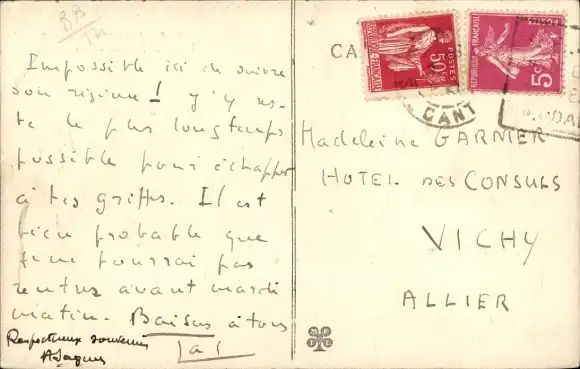 Impossible ici de suivre
son régime ! J'y res-
te le plus longtemps
possible pour échapper
à tes griffes. Il est
bien probable que
je ne pourrai pas
rentrer avant mardi
matin. Baisers à tous
Respectueux souvenir
CA
POSTES
50c
RÉPUBLIQUE FRANÇAISE
POSTES
5c
RÉPUBLIQUE FRANÇAISE
CANT
Madeleine GARNIER
HOTEL DES CONSULS
VICHY
ALLIER